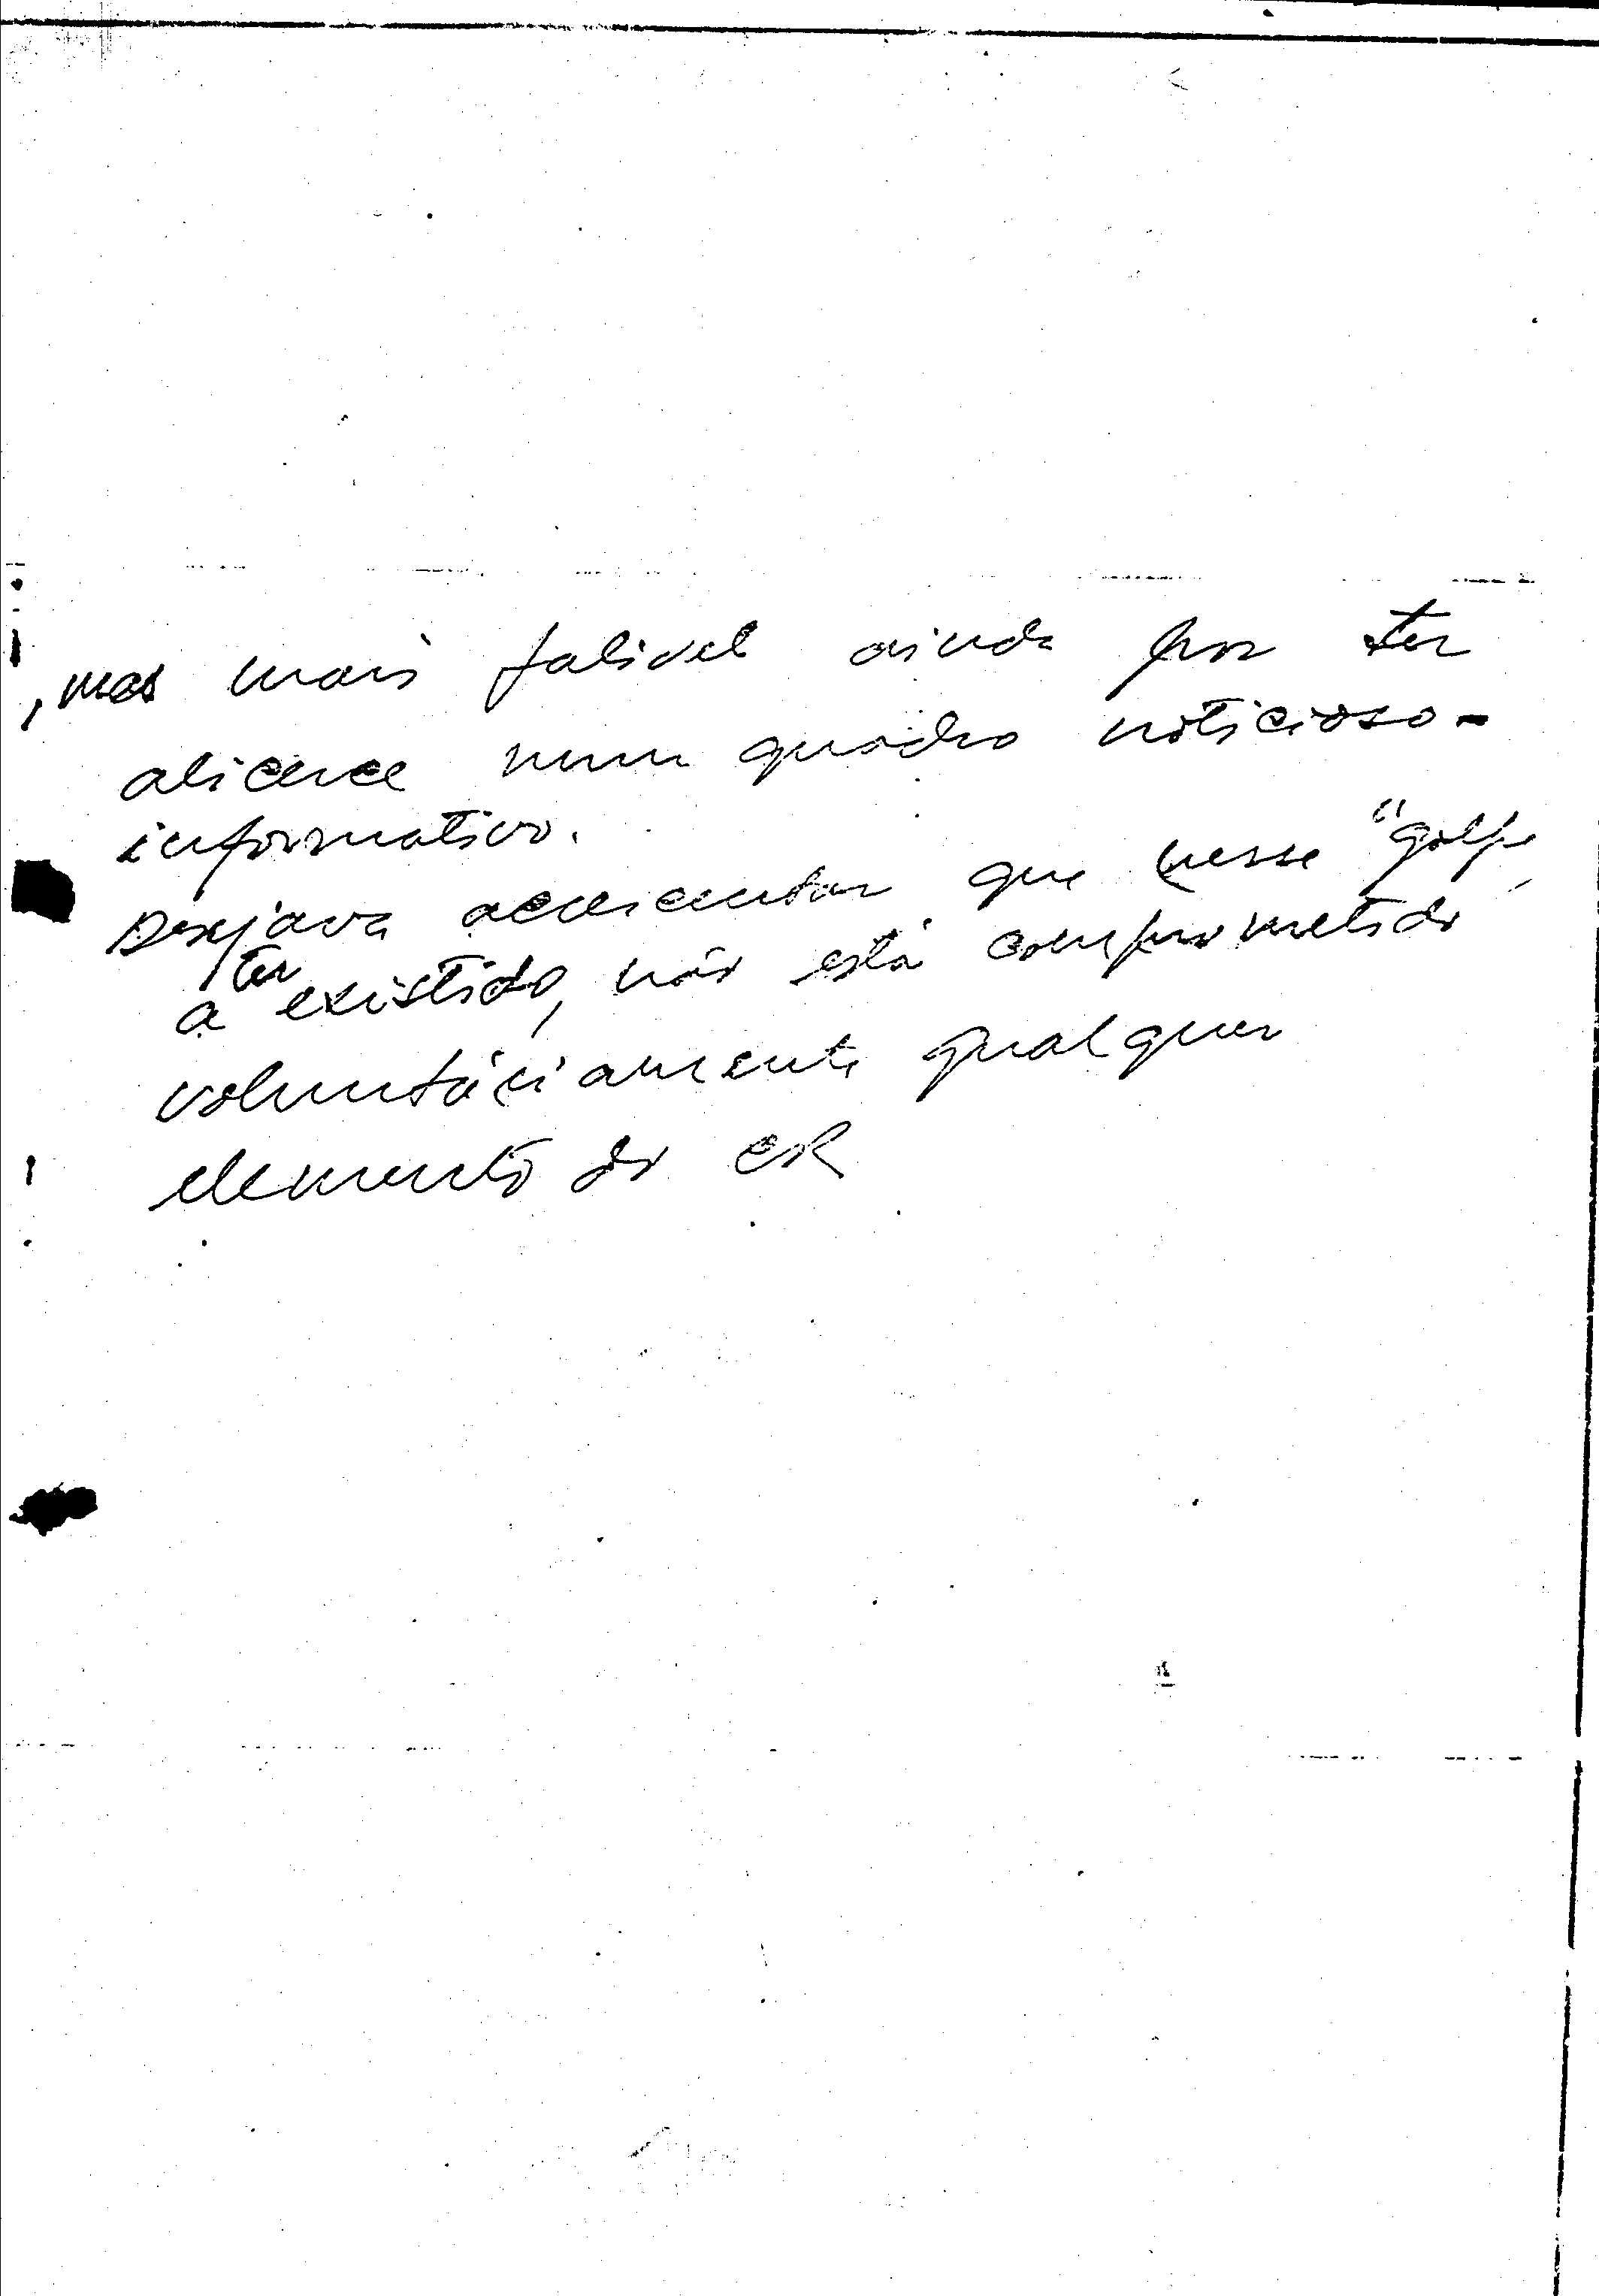 , mas mais falivel ainda por ter
alicerce num quadro noticioso-
informativo.
Desejava acrescentar que nesse "golpe"
a ter existido, não está comprometido
voluntáriamente qualquer
elemento do CR